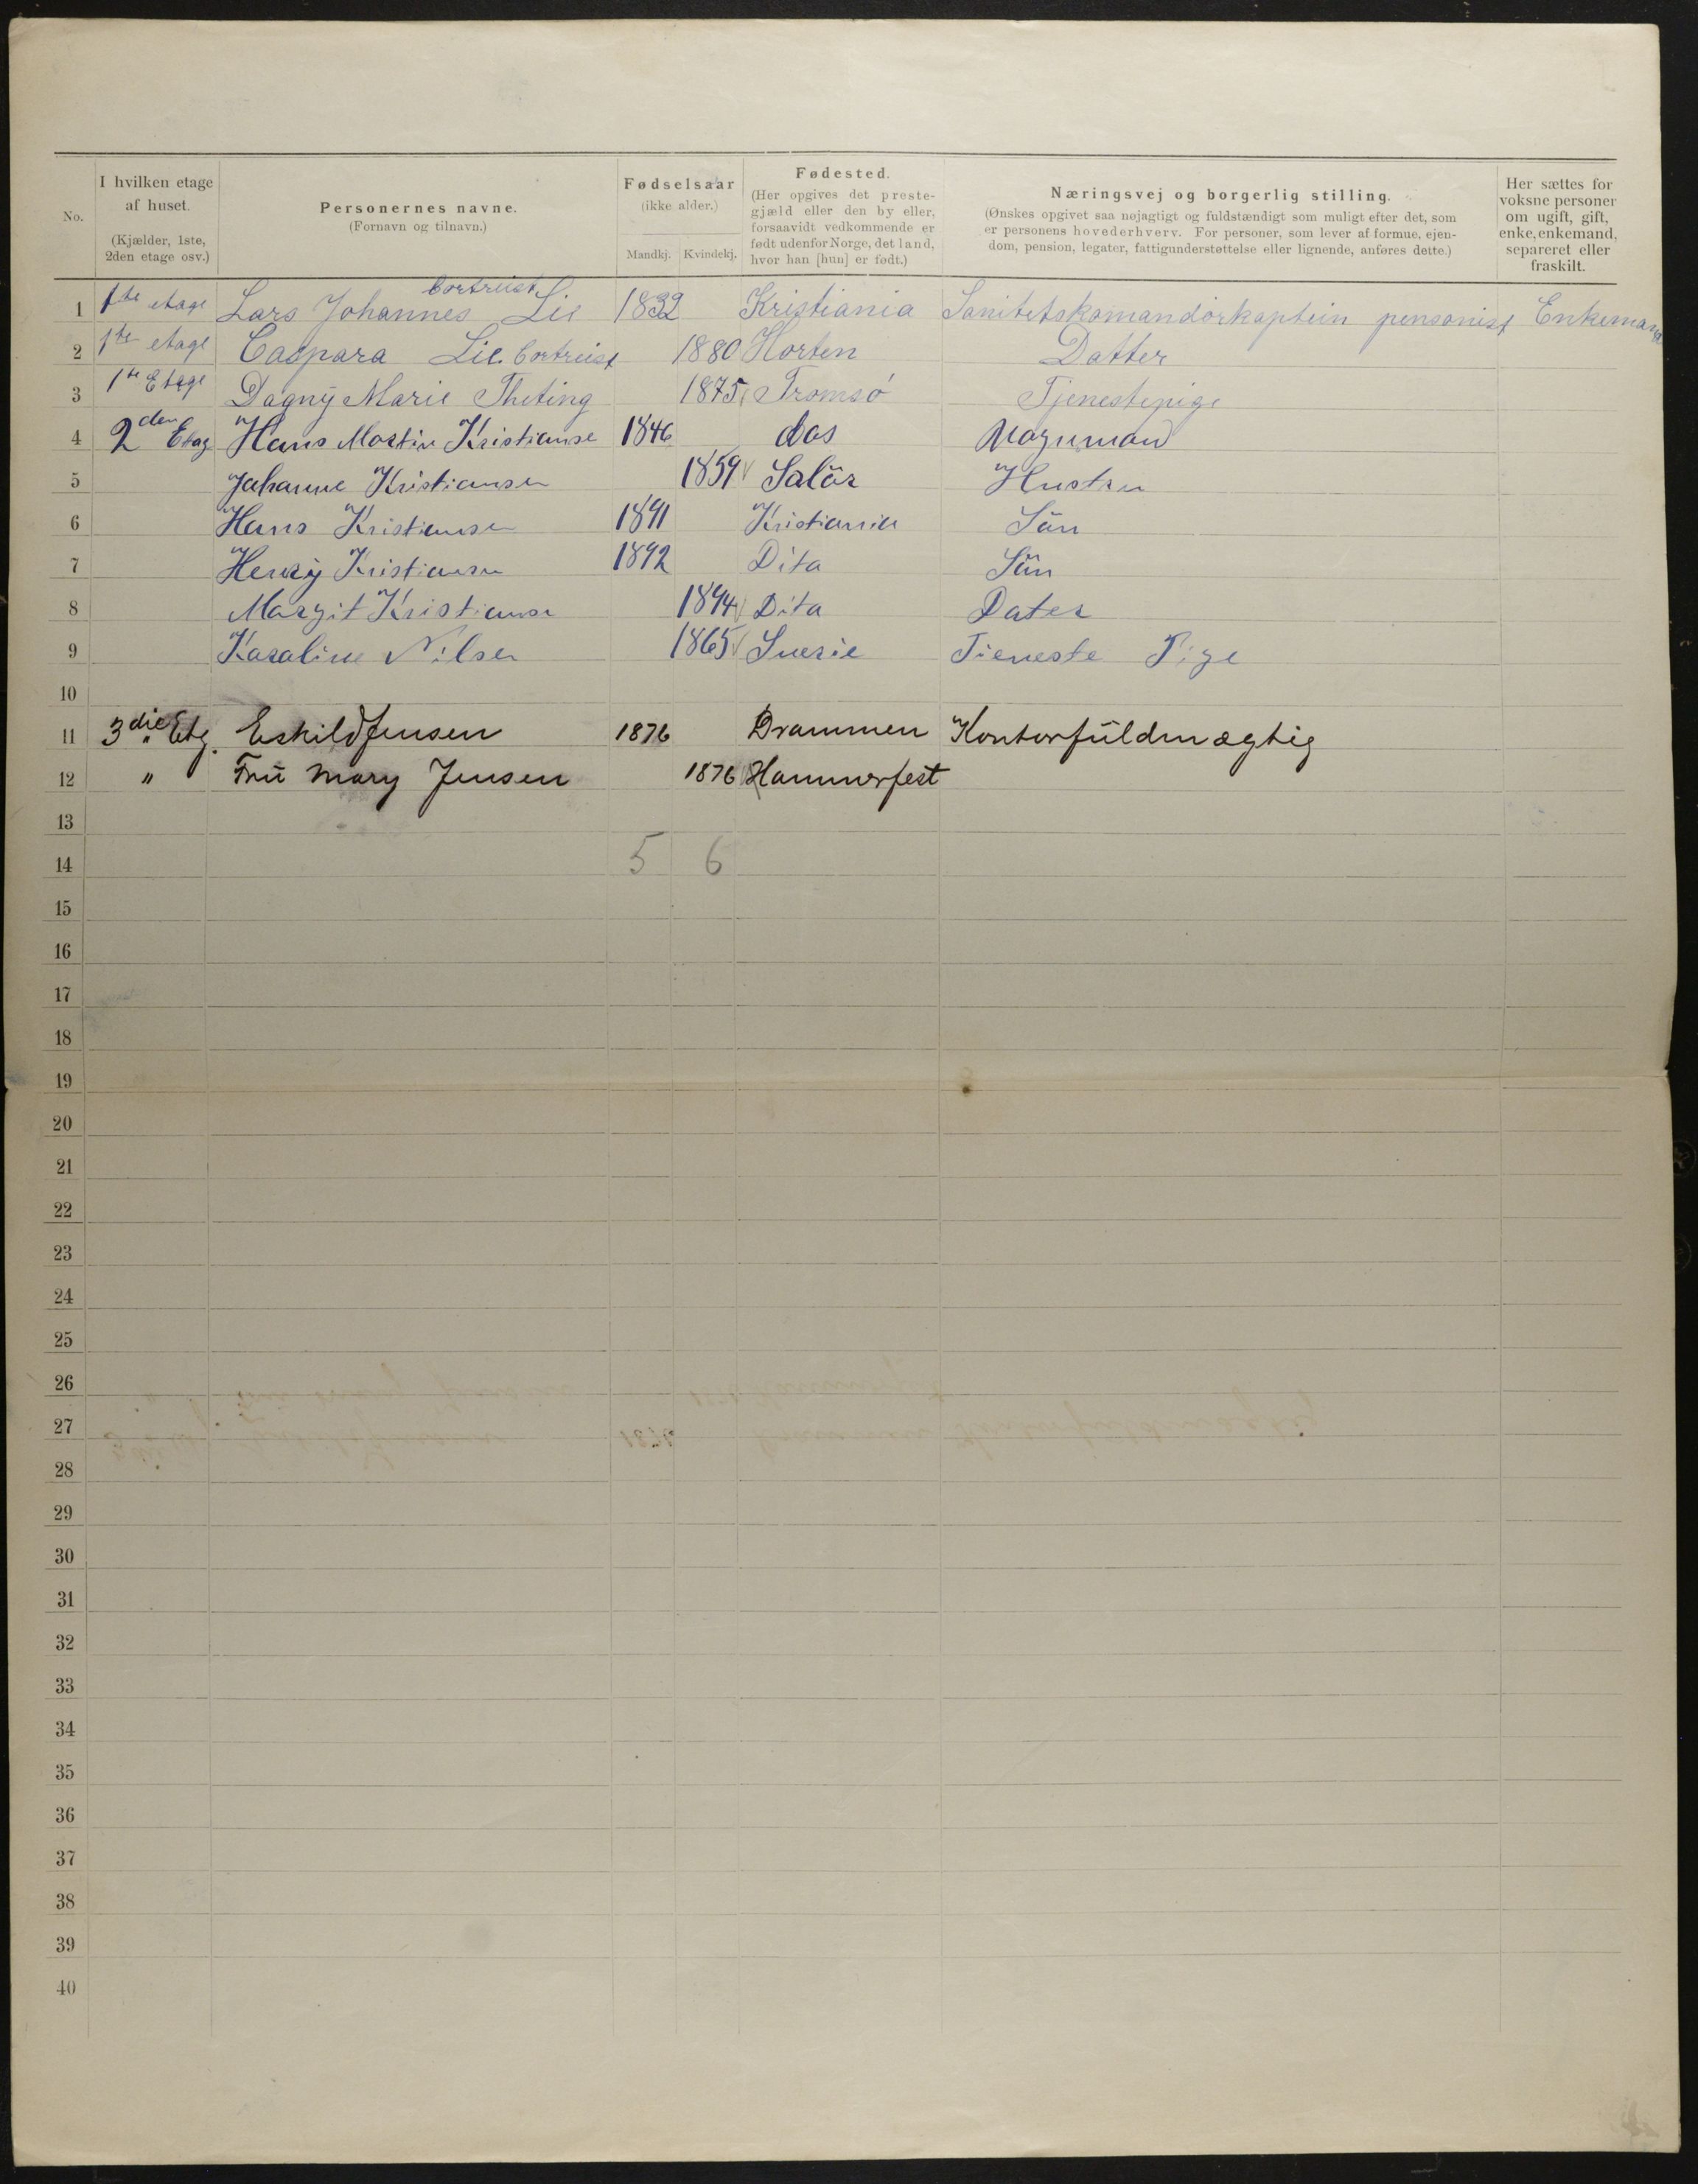 No.
I hvilken etage af huset.
(Kjælder, 1ste, 2den etage osv.)
Personernes navne.
(Fornavn og tilnavn.)
Fødselsaar
(ikke alder.)
Mandkj. Kvindekj.
Fødested.
(Her opgives det preste-
gjæld eller den by eller,
forsaavidt vedkommende er
født udenfor Norge, det land,
hvor han [hun] er født.)
Næringsvej og borgerlig stilling.
(Ønskes opgivet saa nøjagtigt og fuldstændigt som muligt efter det, som
er personens hovederhverv. For personer, som lever af formue, ejen-
dom, pension, legater, fattigunderstøttelse eller lignende, anføres dette.)
Her sættes for
voksne personer
om ugift, gift,
enke, enkemand,
separeret eller
fraskilt.
bortreist
1 1ste etage Lars Johannes Lie 1832 Kristiania Sanitetskomandørkaptein pensonist Enkemand
2 1ste etage Caspara Lie bortreist 1880 Horten Datter
3 1ste Etage Dagny Marie Theting 1875 Tromsø Tjenestepige
4 2den Etag Hans Martin Kristianse 1846 Aas Vognmand
5 Johanne Kristiansen 1859 Solör Hustru
6 Hans Kristiansen 1891 Kristiania Sön
7 Henry Kristiansen 1892 Dito Sön
8 Margit Kristianse 1894 Dito Dater
9 Karaline Nilsen 1865 Sverie Tieneste Pige
10
11 3die Etg. Eskild Jensen 1876 Drammen Kontorfüldmægtig
12 " Frü Mary Jensen 1876 Hammerfest
13
14 5 6
15
16
17
18
19
20
21
22
23
24
25
26
27
28
29
30
31
32
33
34
35
36
37
38
39
40